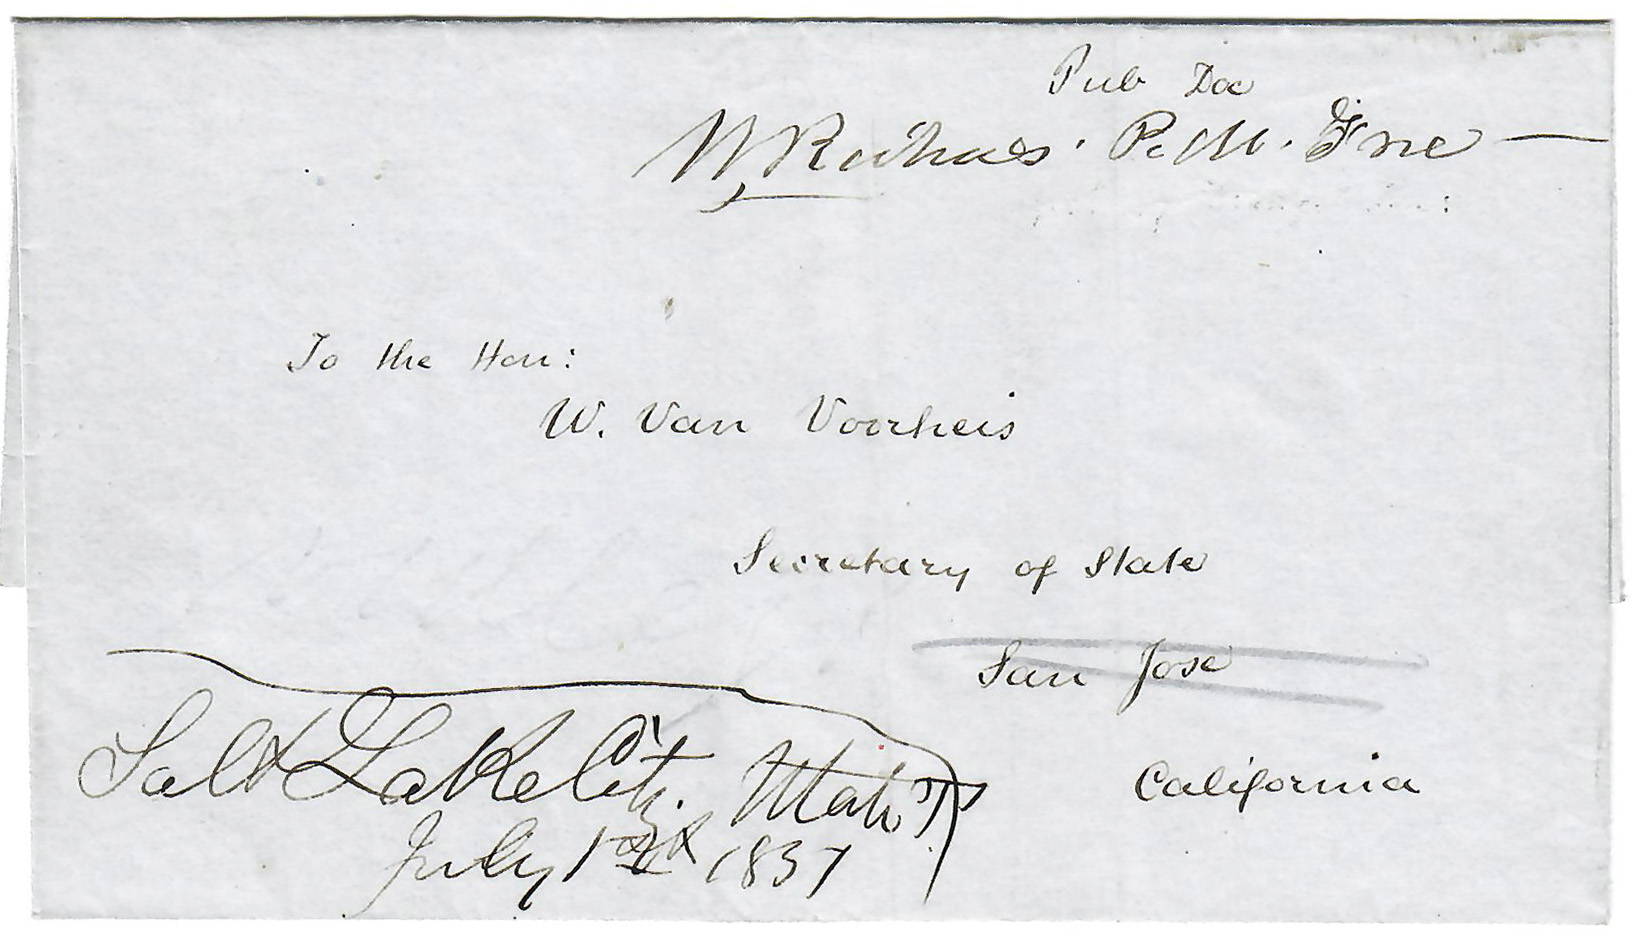 Pub Doc
W Richards. P. M. Free
To the Hon:
W. Van Voorheis
Secretary of State
San Jose
California
Salt Lake City. Utah T
July 1st 1857